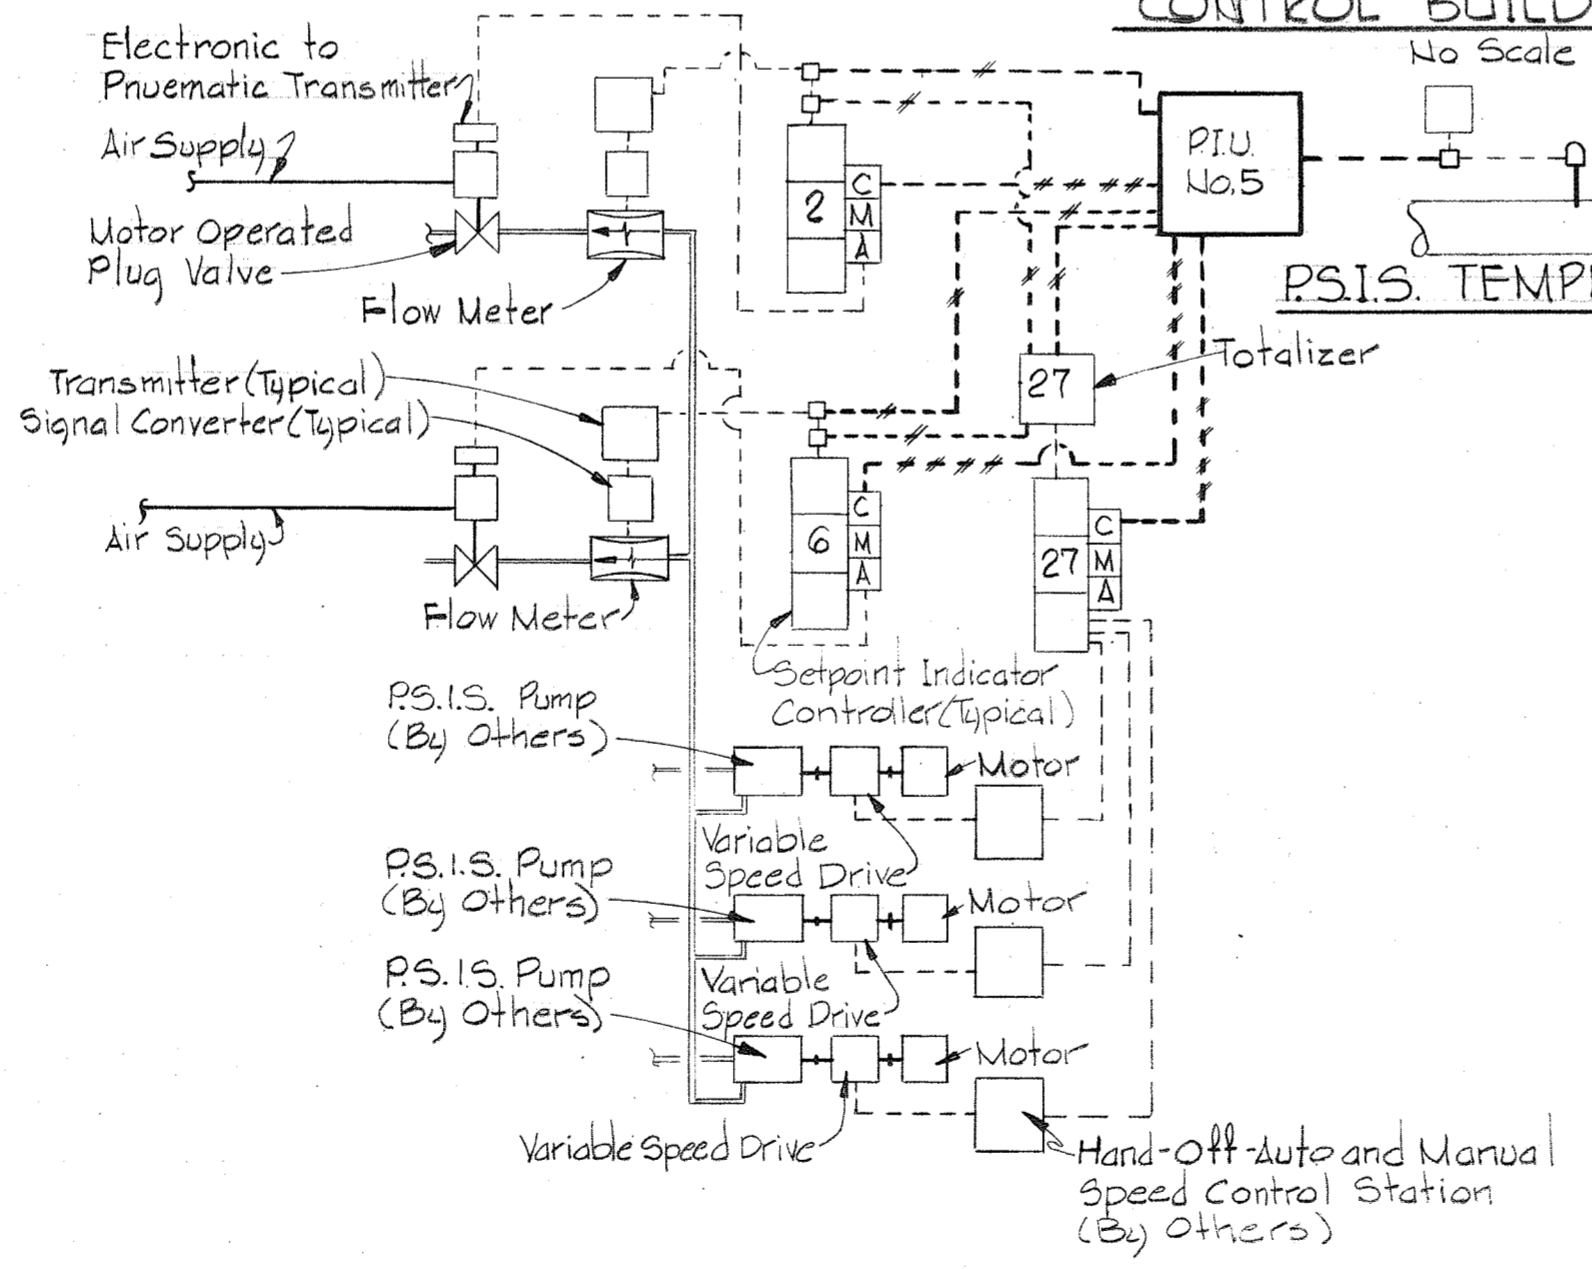 CONTROL BUILD
No Scale
Electronic to
Pnuematic Transmitter
Air Supply
Motor Operated
Plug Valve
Flow Meter
2
C
M
A
P.I.U.
No.5
P.S.I.S. TEMP
Totalizer
27
Transmitter (Typical)
Signal Converter (Typical)
Air Supply
Flow Meter
6
C
M
A
27
C
M
A
Setpoint Indicator
Controller (Typical)
P.S.I.S. Pump
(By Others)
Motor
Variable
Speed Drive
P.S.I.S. Pump
(By Others)
Motor
Variable
Speed Drive
P.S.I.S. Pump
(By Others)
Motor
Variable Speed Drive
Hand-Off-Auto and Manual
Speed Control Station
(By Others)